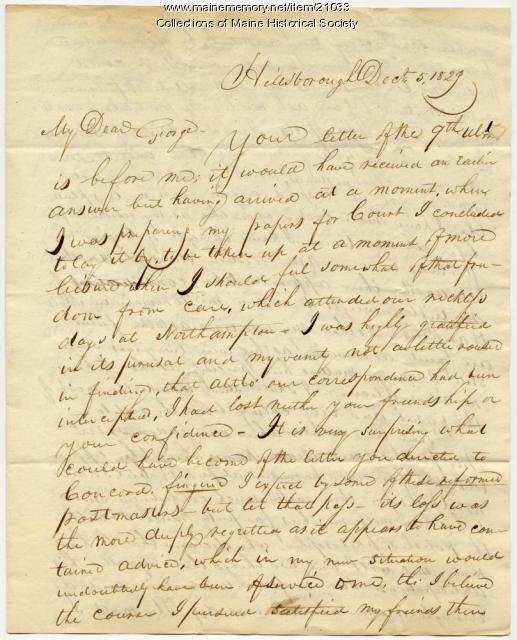 www.mainememory.net/item/21033
Collections of Maine Historical Society
Hillsborough Dec. 5, 1829
My Dear George -
Your letter of the 9th ult
is before me; it would have received an earlier
answer but having arrived at a moment, when
I was preparing my papers for Court I concluded
to lay it by, to be taken up at a moment of more
leisure when I should feel somewhat of that free-
dom from care, which attended our reckless
days at Northampton - I was highly gratified
in its perusal and my vanity not a little roused
in finding, that altho' our correspondence had been
intercepted, I had lost neither your friendship or
your confidence - It is very surprising what
could have become of the letter you directed to
Concord. fingered I expect by some of these reformed
postmasters - but let that pass - its loss was
the more deeply regretted as it appears to have con-
tained advice, which in my new situation would
undoubtedly have been of service to me, tho' I believe
the course I pursued satisfied my friends then